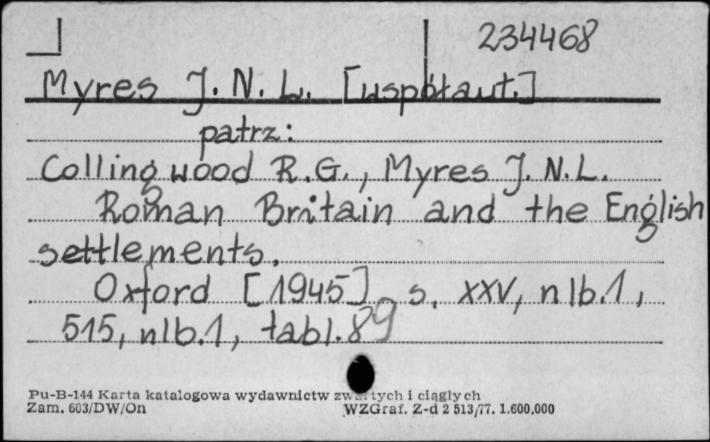 234468
Myres J. N. L. [współaut.]
patrz:
Collingwood R.G., Myres J. N.L.
Roman Britain and the English
settlements.
Oxford [1945] s. XXV, nlb.1,
515, nlb.1, tabl. 89
Pu-B-144 Karta katalogowa wydawnictw zwartych i ciągłych
Zam. 603/DW/On WZGraf. Z-d 2 513/77. 1.600,000